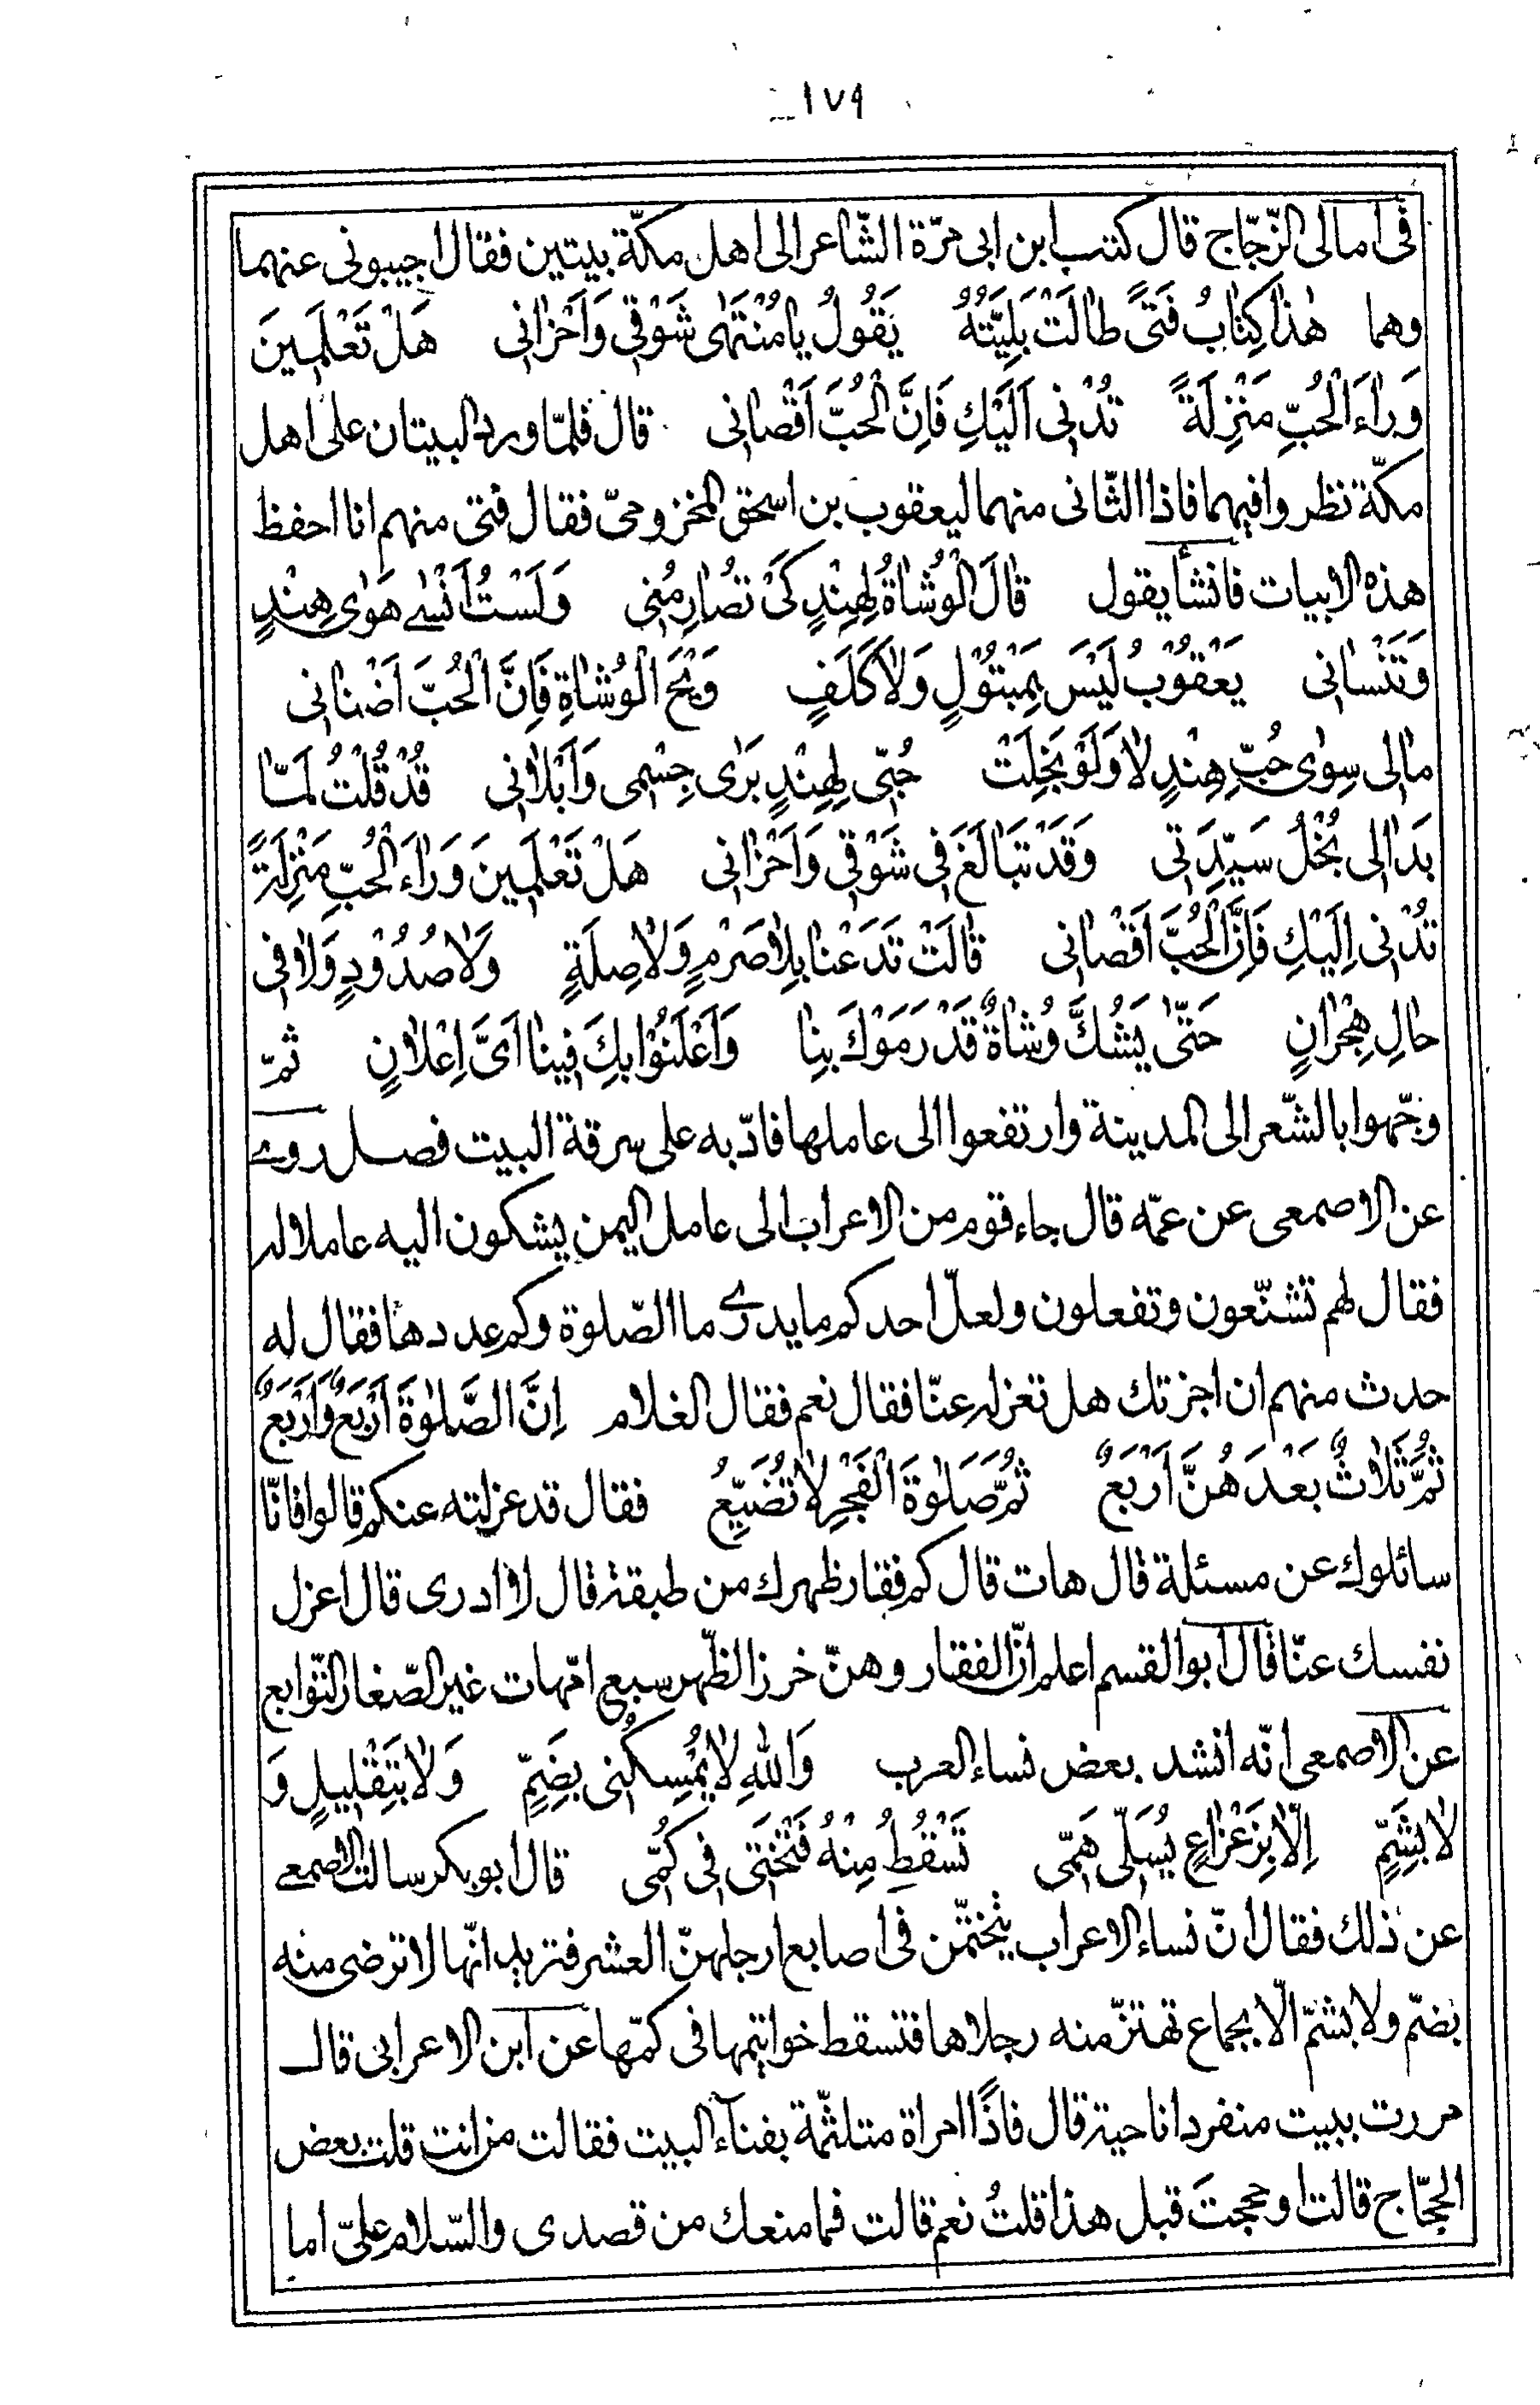 ١٧٩
فى امالى الزّجّاج قال كتب ابن ابى مرّة الشّاعر الى اهل مكّة بيتين فقال اجيبونى عنهما
وهما هٰذا كِتابُ فَتًى طالَتْ بَلِيَّتُهُ يَقُولُ يا مُنْتَهٰى شَوْقي وَاَحْزانى هَلْ تَعْلَمِينَ
وَراءَ الْحُبِّ مَنْزِلَةً تُدْنى اَلَيْكِ فَاِنَّ الْحُبَّ اَقْصانى قال فلمّا ورد البيتان على اهل
مكّة نظروا فيهما فاذا الثّانى منهما ليعقوب بن اسحق المخزومىّ فقال فتى منهم انا احفظ
هذه الابيات فانشأ يقول قالَ الْوُشاةُ لِهِنْدٍ كَىْ تُصارِمُنى وَلَسْتُ اَنْسٰى هَوٰى هِنْدٍ
وَتَنْسانى يَعْقُوبُ لَيْسَ بِمَبْتُولٍ وَلا كَلَفٍ وَيْحَ الْوُشاةِ فَاِنَّ الْحُبَّ اَضْنانى
مالى سِوٰى حُبِّ هِنْدٍ لا وَلَوْ بَخِلَتْ حُبّى لِهِنْدٍ بَرٰى جِسْمى وَاَبْلانى قُدْ قُلْتُ لَمّا
بَدا لى بُخْلُ سَيِّدَتى وَقَدْ تَبالَغَ فى شَوْقي وَاَحْزانى هَلْ تَعْلَمِينَ وَراءَ الْحُبِّ مَنْزِلَةً
تُدْنى اِلَيْكِ فَاِنَّ الْحُبَّ اَقْصانى قالَتْ تَدَعْنا بِلا صَرْمٍ وَلا صِلَةٍ وَلا صُدُوْدٍ وَلا فى
حالِ هِجْرانٍ حَتّٰى يَشُكَّ وُشاةٌ قَدْ رَمَوْكَ بِنا وَاَعْلَنُوْا بِكَ فِينا اَىَّ اِعْلانٍ ثمّ
وجّهوا بالشّعر الى المدينة وارتفعوا الى عاملها فادّبه على سرقة البيت فصل روے
عن الاصمعى عن عمّه قال جاء قوم من الاعراب الى عامل اليمن يشكون اليه عاملا له
فقال لهم تشنّعون وتفعلون ولعلّ احدكم ما يدرے ما الصّلوة وكم عددها فقال له
حدث منهم ان اجزتك هل تعزله عنّا فقال نعم فقال الغلام اِنَّ الصَّلوٰةَ اَرْبَعٌ وَاَرْبَعٌ
ثُمَّ ثَلاثٌ بَعْدَهُنَّ اَرْبَعٌ ثُمَّ صَلوٰةَ الْفَجْرِ لا تُضَيِّعُ فقال قد عزلته عنكم قالوا فانّا
سائلوك عن مسئلة قال هات قال كم فقار ظهرك من طبقة قال لا ادرى قال اعزل
نفسك عنّا قال ابو القسم اعلم انّ الفقار وهنّ خرز الظّهر سبع امّهات غير الصّغار التّوابع
عن الاصمعى انّه انشد بعض نساء العرب وَاللهِ لا يُمْسِكُنى بِضَمٍّ وَلا بِتَقْبِيلٍ وَ
لا بِشَمٍّ اِلّا بِزَعْزاعٍ يُسَلّى هَمّى تَسْقُطُ مِنْهُ فَتْخَتى فى كُمّى قال ابو بكر سالت الاصمعے
عن ذلك فقال انّ نساء الاعراب يتختّمن فى اصابع ارجلهنّ العشر فتريد انّها لا ترضى منه
بضمّ ولا بشمّ الّا بجماع تهتزّ منه رجلاها فتسقط خواتيمها فى كمّها عن ابن الاعرابى قال
مررت ببيت منفردا ناحية قال فاذًا امراة متلثّمة بفنآء البيت فقالت من انت قلت بعض
الحجّاج قالت اوحججتَ قبل هذا قلتُ نعم قالت فما منعك من قصدى والسّلام علىّ اما